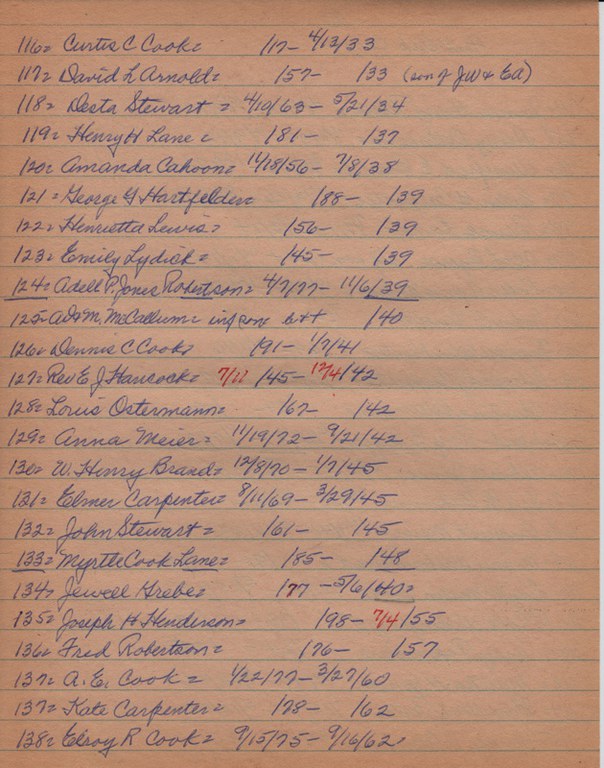 116= Curtis C Cook= /17- 4/13/33
117= David L Arnold= /57- /33 (son of JW & Ed)
118= Desta Stewart = 4/19/63- 5/21/34
119= Henry H Lane = /81- /37
120= Amanda Cahoon= 11/18/56- 7/8/38
121= George G Hartfelder= /88- /39
122= Henrietta Lewis= /56- /39
123= Emily Lydick= /45- /39
124= Adell P. Jones Robertson= 4/7/77- 11/6/39
125= M. McCallum= /40
126= Dennis C Cook= /91- 1/7/41
127= Rev E J Hancock= 7/11 /45- 12/4/42
128= Louis Ostermann= /67- /42
129= Anna Meier= 11/19/72- 9/21/42
130= W. Henry Brand= 12/8/70- 1/7/45
131= Elmer Carpenter= 8/11/69- 3/29/45
132= John Stewart= /61- /45
133= Myrtle Cook Lane= /85- /48
134= Jewell Grebe= /77 -5/6/40=
135= Joseph H Henderson= /98- 7/4/55
136= Fred Robertson= /76- /57
137= A. E. Cook = 1/22/77- 3/27/60
137= Kate Carpenter= /78- /62
138= Elroy R Cook= 9/15/75- 9/16/62=